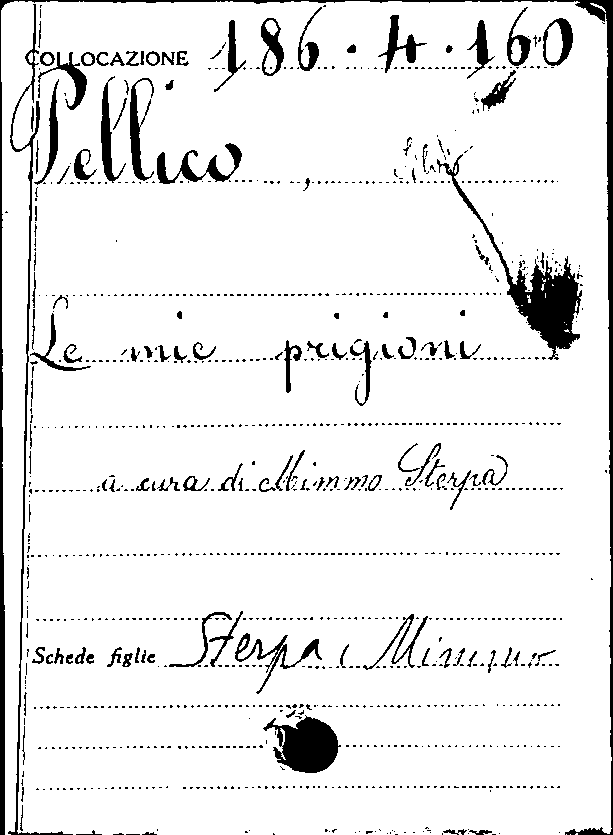 COLLOCAZIONE 186.4.160
Pellico, Silvio
Le mie prigioni
a cura di Mimmo Sterpa
Schede figlie Sterpa, Mimmo